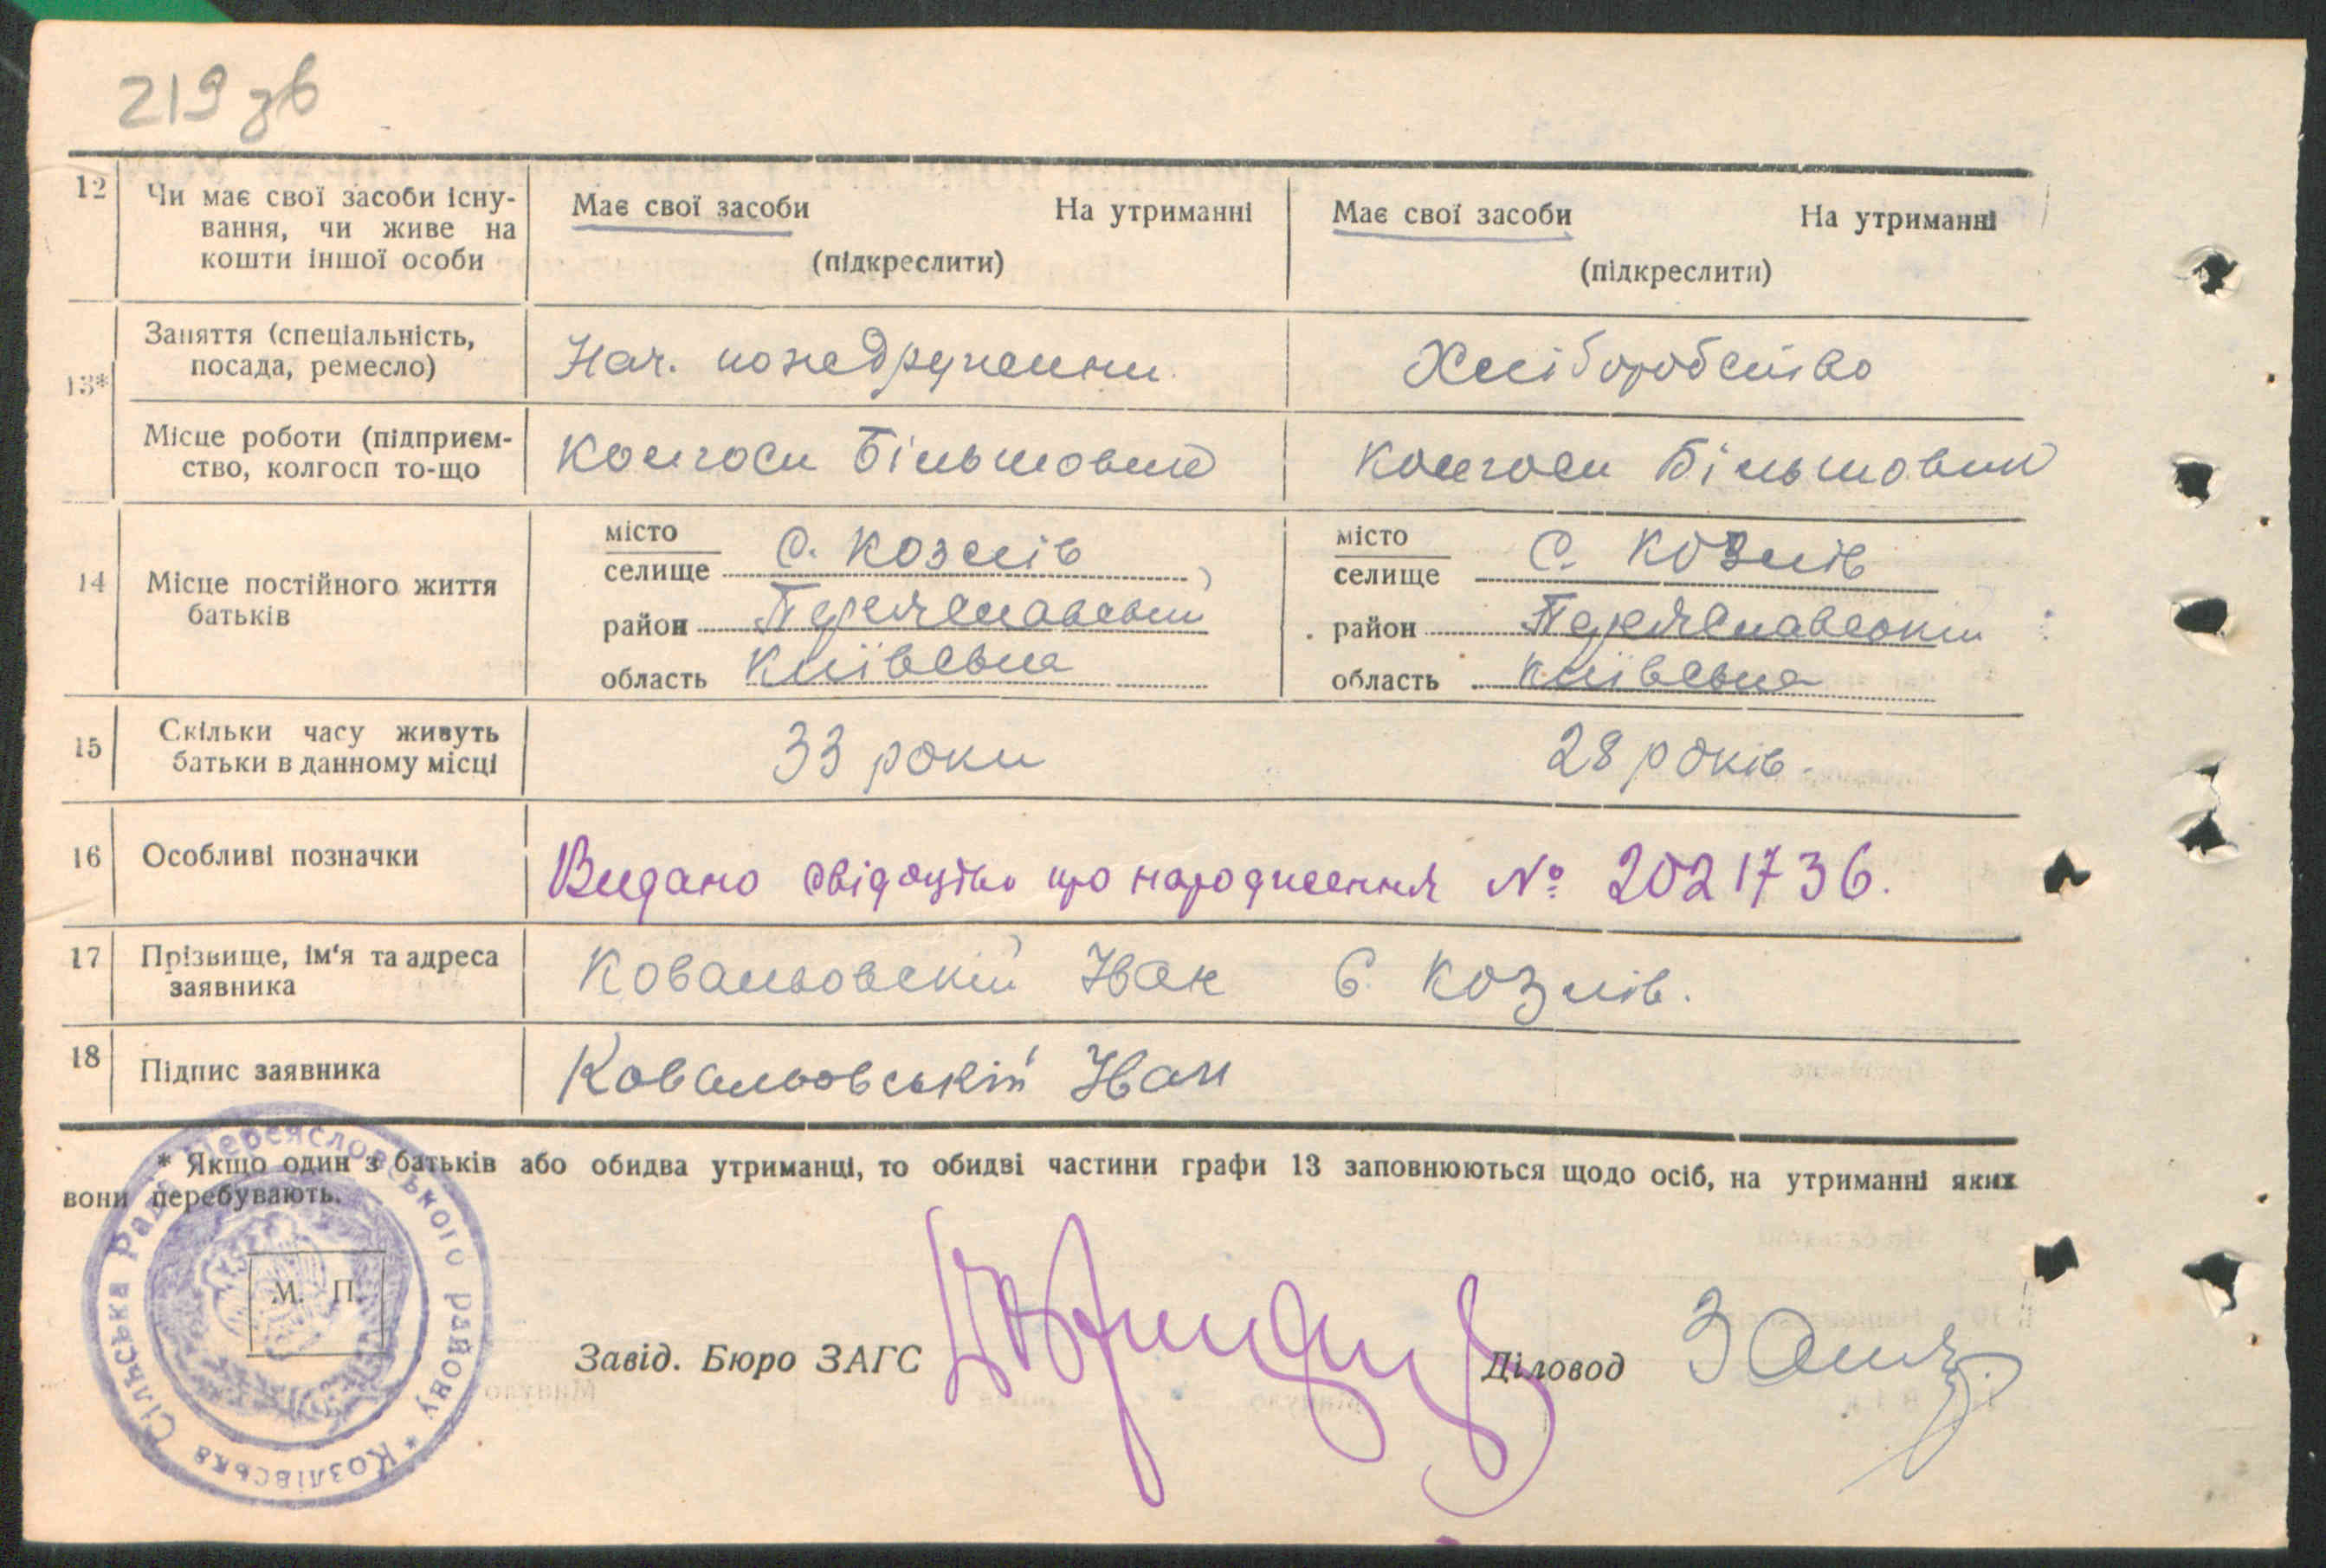 219 зв
12 Чи має свої засоби існу-
вання, чи живе на
кошти іншої особи
Має свої засоби На утриманні
(підкреслити)
Має свої засоби На утриманні
(підкреслити)
13* Заняття (спеціальність,
посада, ремесло)
Нач. пожедружени
Хліборобство
Місце роботи (підприєм-
ство, колгосп то-що
Колгосп Більшовик
Колгосп Більшовик
14 Місце постійного життя
батьків
місто
селище С. Козлів
район Переяславський
область Київська
місто
селище С. Козлів
район Переяславський
область Київська
15 Скільки часу живуть
батьки в данному місці
33 роки
28 років.
16 Особливі позначки
Видано свідоцтво про народження № 2021736.
17 Прізвище, ім'я та адреса
заявника
Ковальовский Іван С. Козлів.
18 Підпис заявника
Ковальовський Іван
* Якщо один з батьків або обидва утриманці, то обидві частини графи 13 заповнюються щодо осіб, на утриманні яких
вони перебувають.
Козлівська Сільська Рада Переясловського району *
М. П.
Завід. Бюро ЗАГС
Діловод